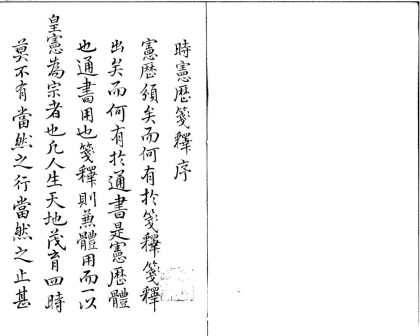 時憲歷箋釋序
憲歷頒矣而何有於箋釋箋釋
出矣而何有於通書是憲歷體
也通書用也箋釋則兼體用而一以
皇憲為宗者也凡人生天地茂育四時
莫不有當然之行當然之止甚